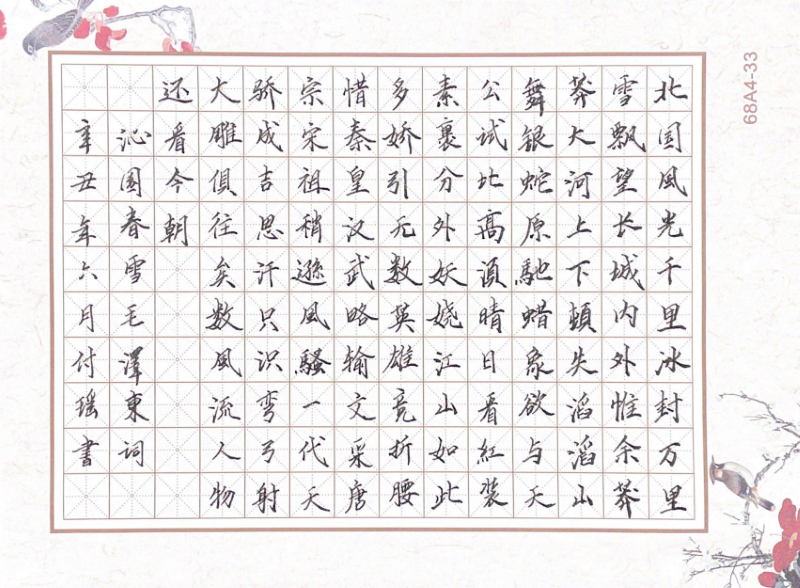 北国風光千里冰封万里
雪飘望长城内外惟余莽
莽大河上下頓失滔滔山
舞银蛇原馳蜡象欲与天
公试比高須晴日看紅装
素裹分外妖娆江山如此
多娇引无数英雄竞折腰
惜秦皇汉武略输文采唐
宗宋祖稍遜風騷一代天
骄成吉思汗只识弯弓射
大雕俱往矣数風流人物
还看今朝
沁園春雪毛澤東詞
辛丑年六月付瑶書
68A4-33